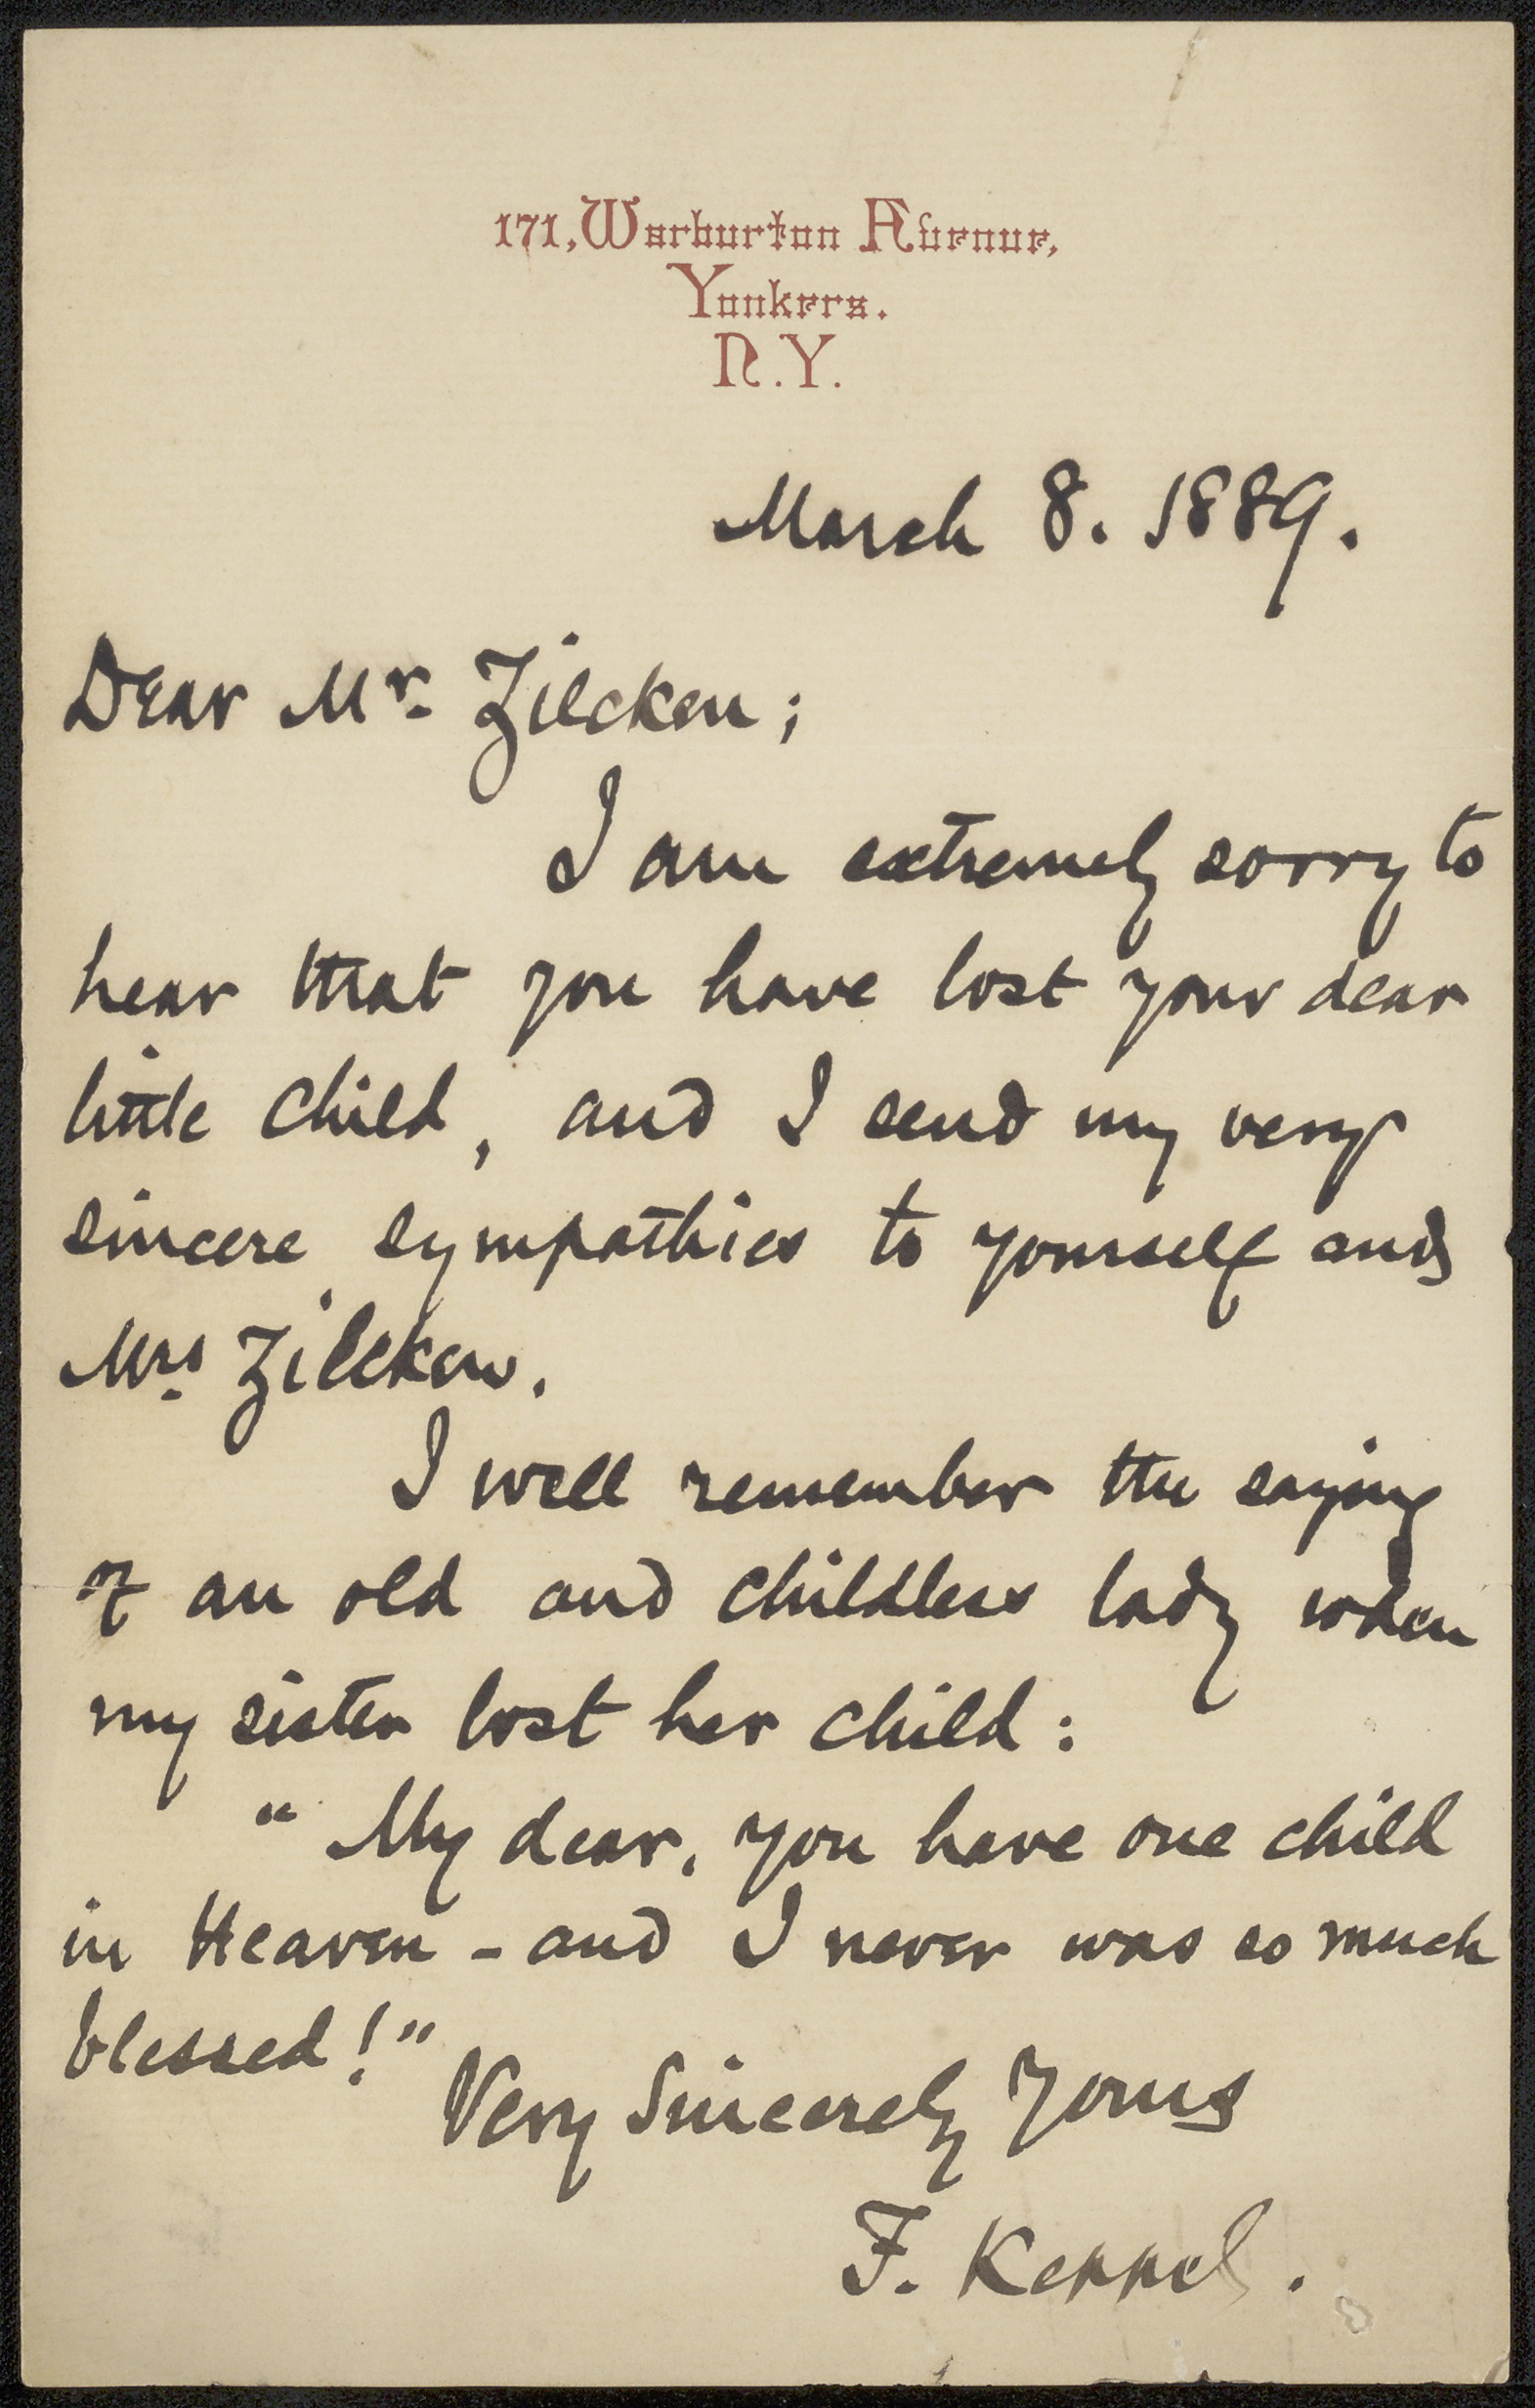 171, Warburton Avenue,
Yonkers.
N.Y.
March 8. 1889.
Dear Mr. Zilcken;
I am extremely sorry to
hear that you have lost your dear
little child, and I send my very
sincere sympathies to yourself and
Mrs. Zilcken.
I well remember the saying
of an old and childless lady when
my sister lost her child:
"My dear, you have one child
in Heaven - and I never was so much
blessed!"
Very Sincerely Yours
F. Keppel.